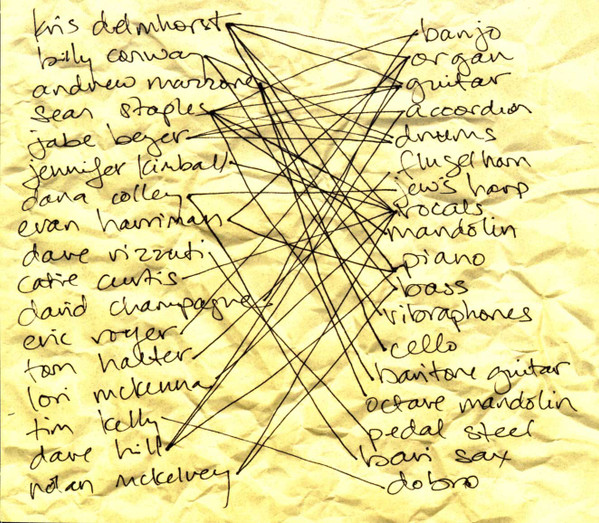 kris delmhorst
billy conway
andrew mazzone
sean staples
jabe beyer
jennifer kimball
dana colley
evan harriman
dave rizzuti
catie curtis
david champagne
eric royer
tom halter
lori mckenna
tim kelly
dave hill
nolan mckelvey
banjo
organ
guitar
accordion
drums
flugelhorn
jew's harp
vocals
mandolin
piano
bass
vibraphones
cello
baritone guitar
octave mandolin
pedal steel
bari sax
dobro